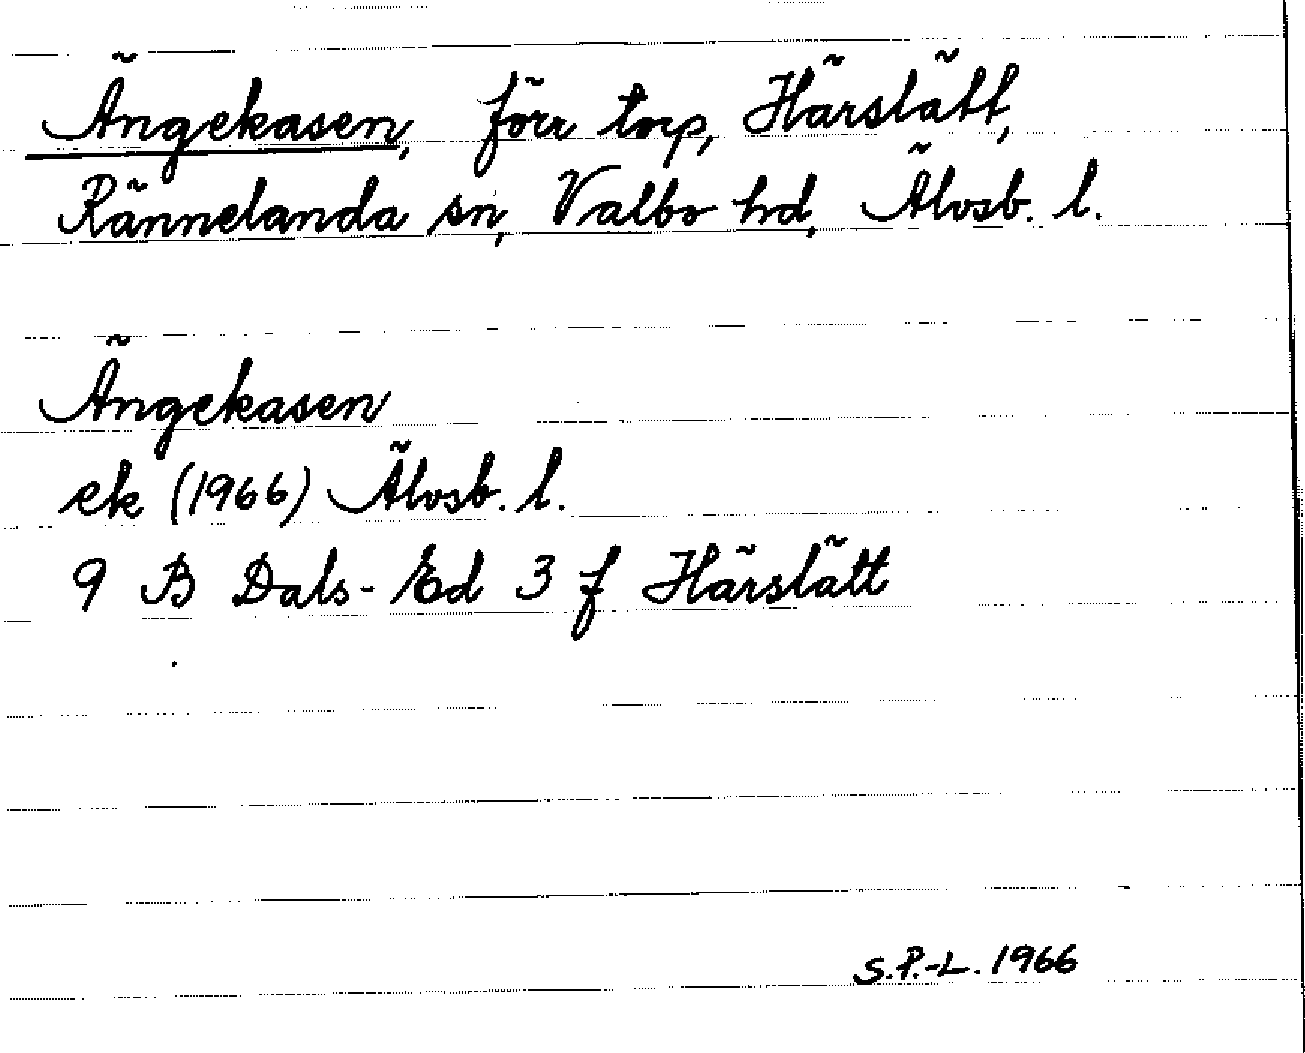 Ängekasen, förr torp, Härslätt,
Rännelanda sn, Valbo hd, Älvsb. l.
Ängekasen
ek (1966) Älvsb. l.
9 B Dals-Ed 3 f Härslätt
S.P.-L. 1966